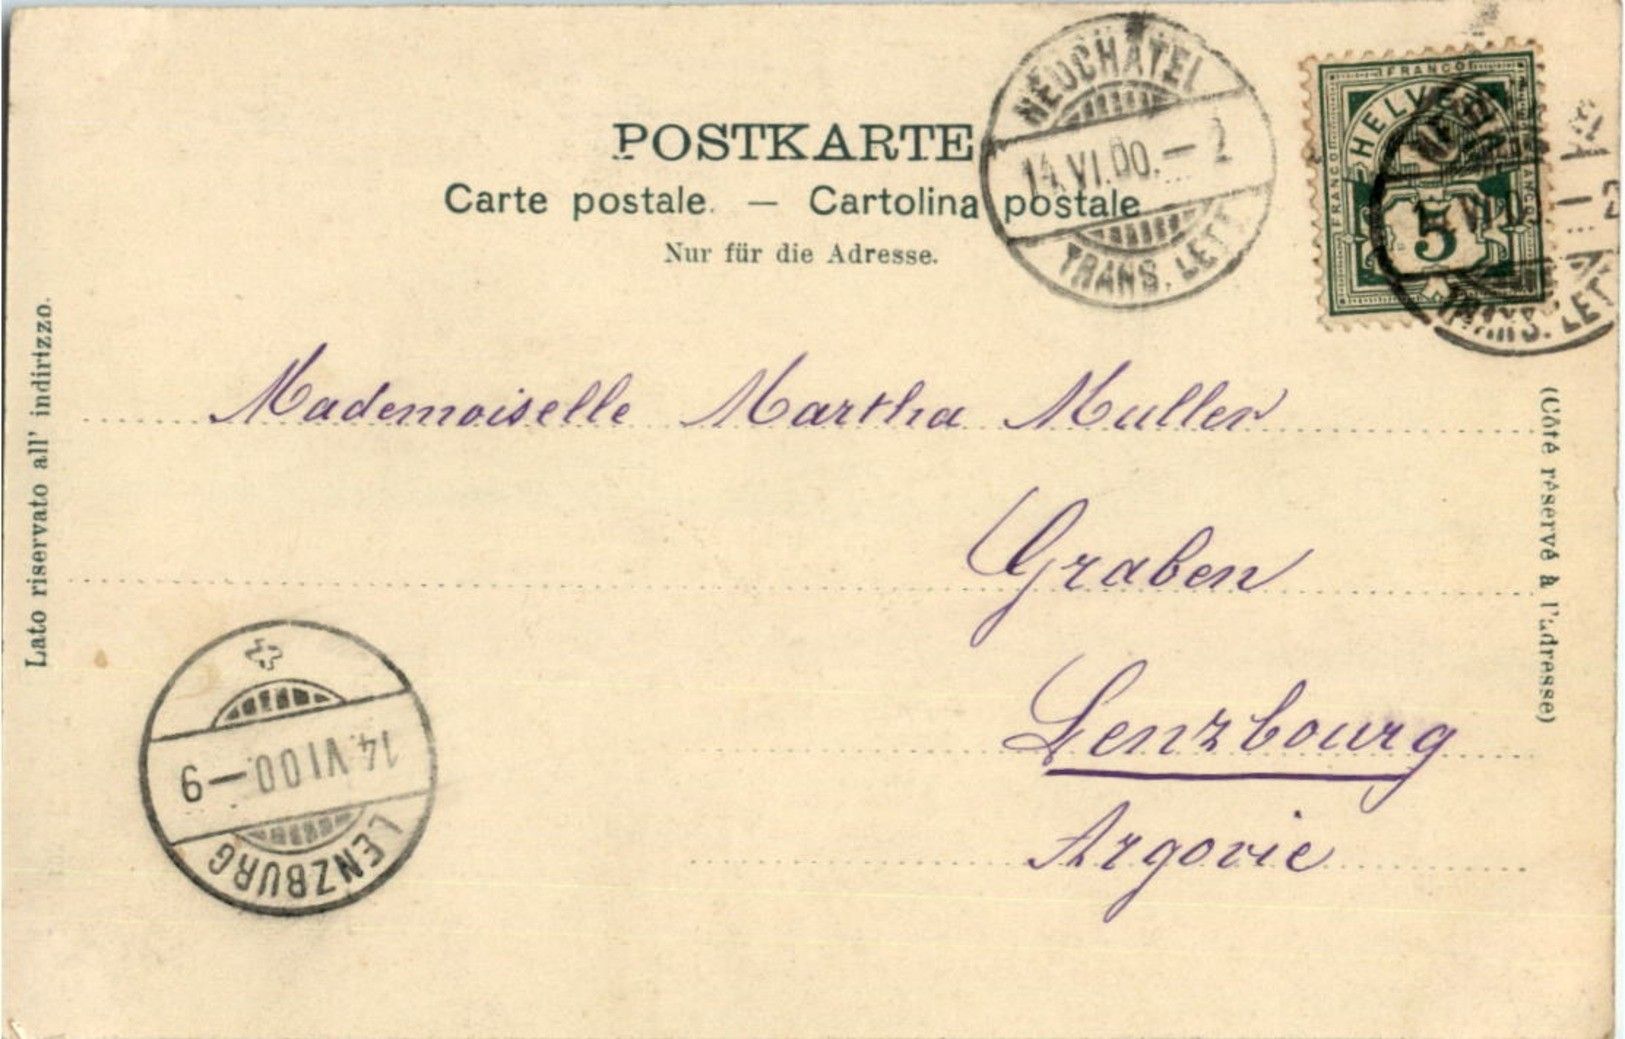 POSTKARTE
Carte postale. — Cartolina postale
Nur für die Adresse.
NEUCHATEL
14.VI.00.—2
TRANS. LETT.
FRANCO
FRANCO
HELVETIA
5
TRANS. LETT
Lato riservato all' indirizzo.
(Côté réservé à l'adresse)
Mademoiselle Martha Muller
Graben
Lenzbourg
Argovie
14.VI.00.—9
LENZBURG